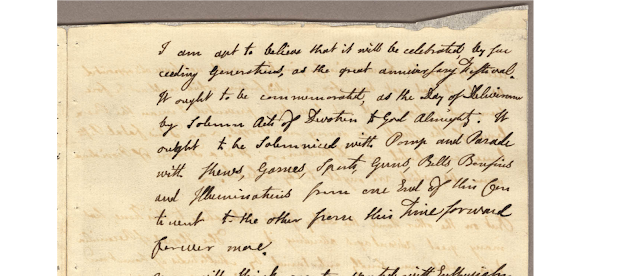 I am apt to believe that it will be celebrated, by suc
ceeding Generations, as the great anniversary Festival.
It ought to be commemorated, as the Day of Deliverance
by Solemn Acts of Devotion to God Almighty. It
ought to be solemnized with Pomp and Parade
with Shews, Games, Sports, Guns, Bells, Bonfires
and Illuminations from one End of this Con
tinent to the other from this Time forward
forever more.
will think me transported with Enthusiasm